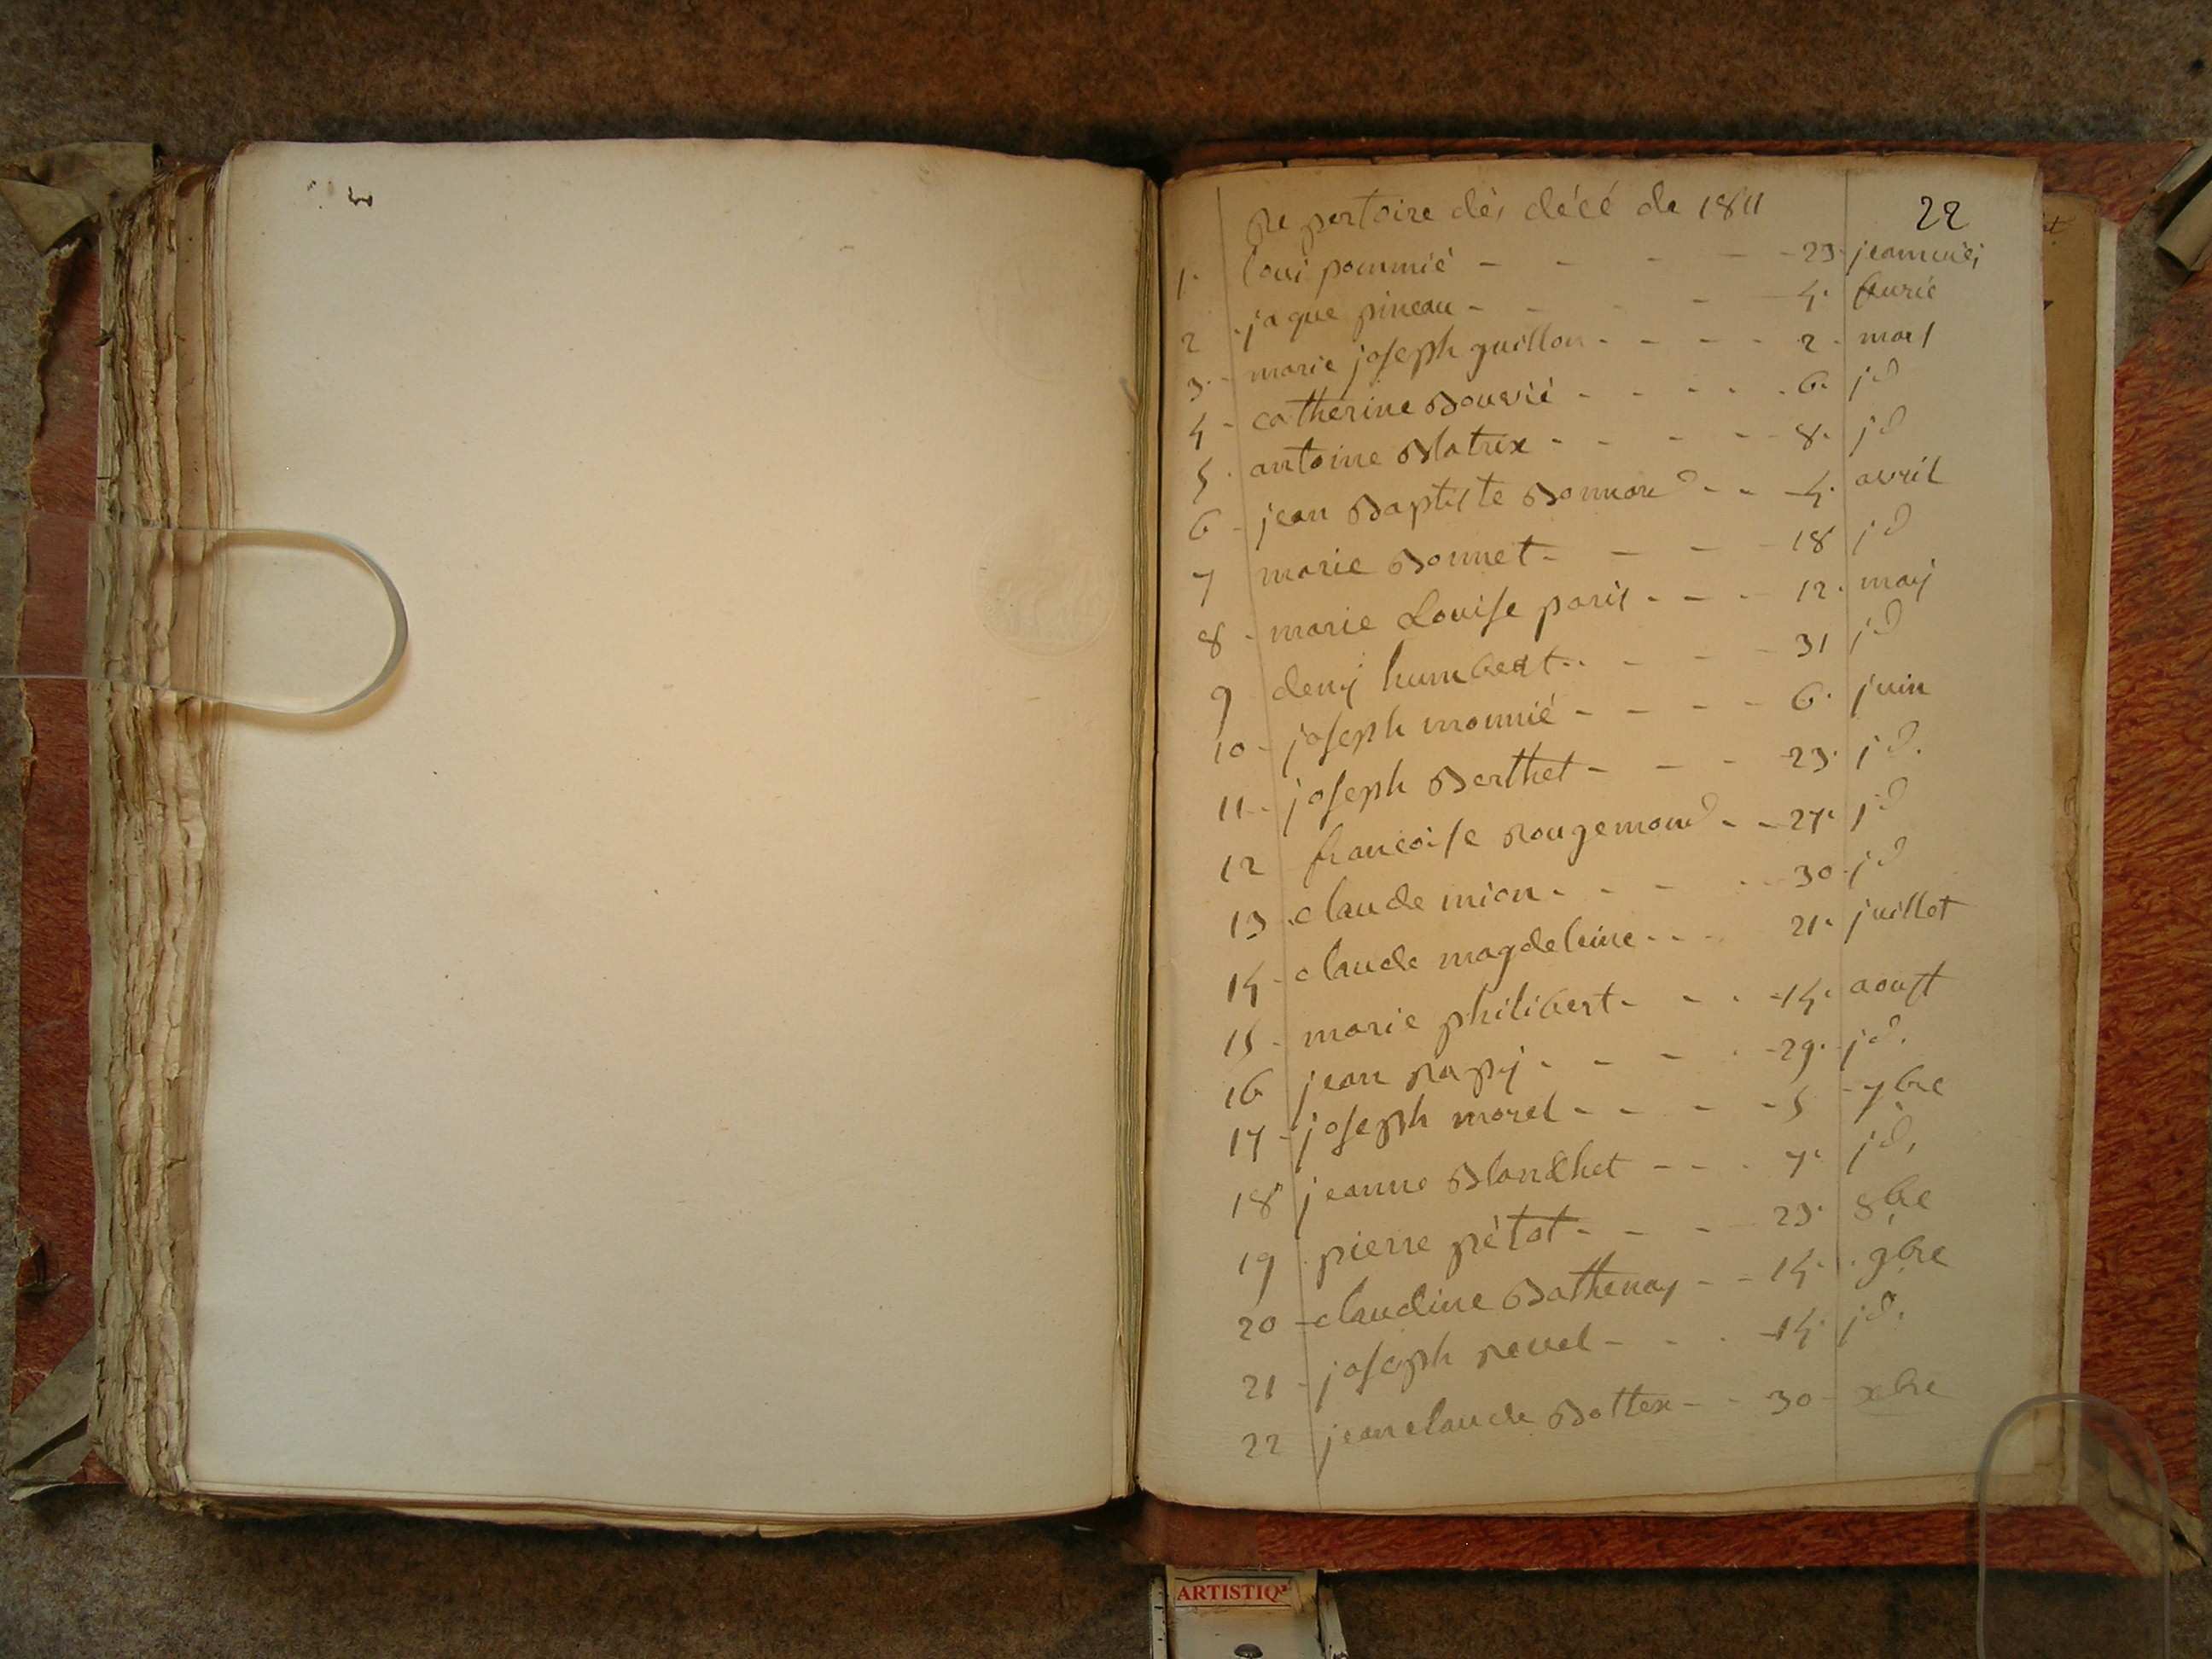 Repertoire dès décé de 1811
22
1. loui pommié - - - - - 23. jeanvié
2 . jaque pineau - - - - 4. feurié
3. - marie joseph guillon - - - - 2. mars
4 - catherine Bouvié - - - - - 6. jd
5. antoine Blatrix - - - - 8. jd
6 - jean Baptiste Bonnard - - 4. avril
7 marie Bonnet - - - - 18 jd
8 - marie Louise paris - - - 12. may
9 deny humbert - - - 31 jd
10 - joseph monnié - - - - 6. juin
11 - joseph Berthet - - - 23. jd.
12 francoise Rougemond - - 27. jd
13 . claude mion - - - - 30. jd
14 - claude magdeleine - - - 21. juillet
15 - marie philibert - - - 14. aoust
16 jean Rapy - - - - 29. jd.
17 - joseph morel - - - - 5 - 7bre
18 jeanne Blanchet - - - 7. jd.
19 . pierre pétot - - - 23. 8bre
20 - claudine Bathenay - - 14. . 9bre
21 - joseph Revel - - - 14. jd.
22 jean claude Bottex - - 30 - xbre
ARTISTIQ